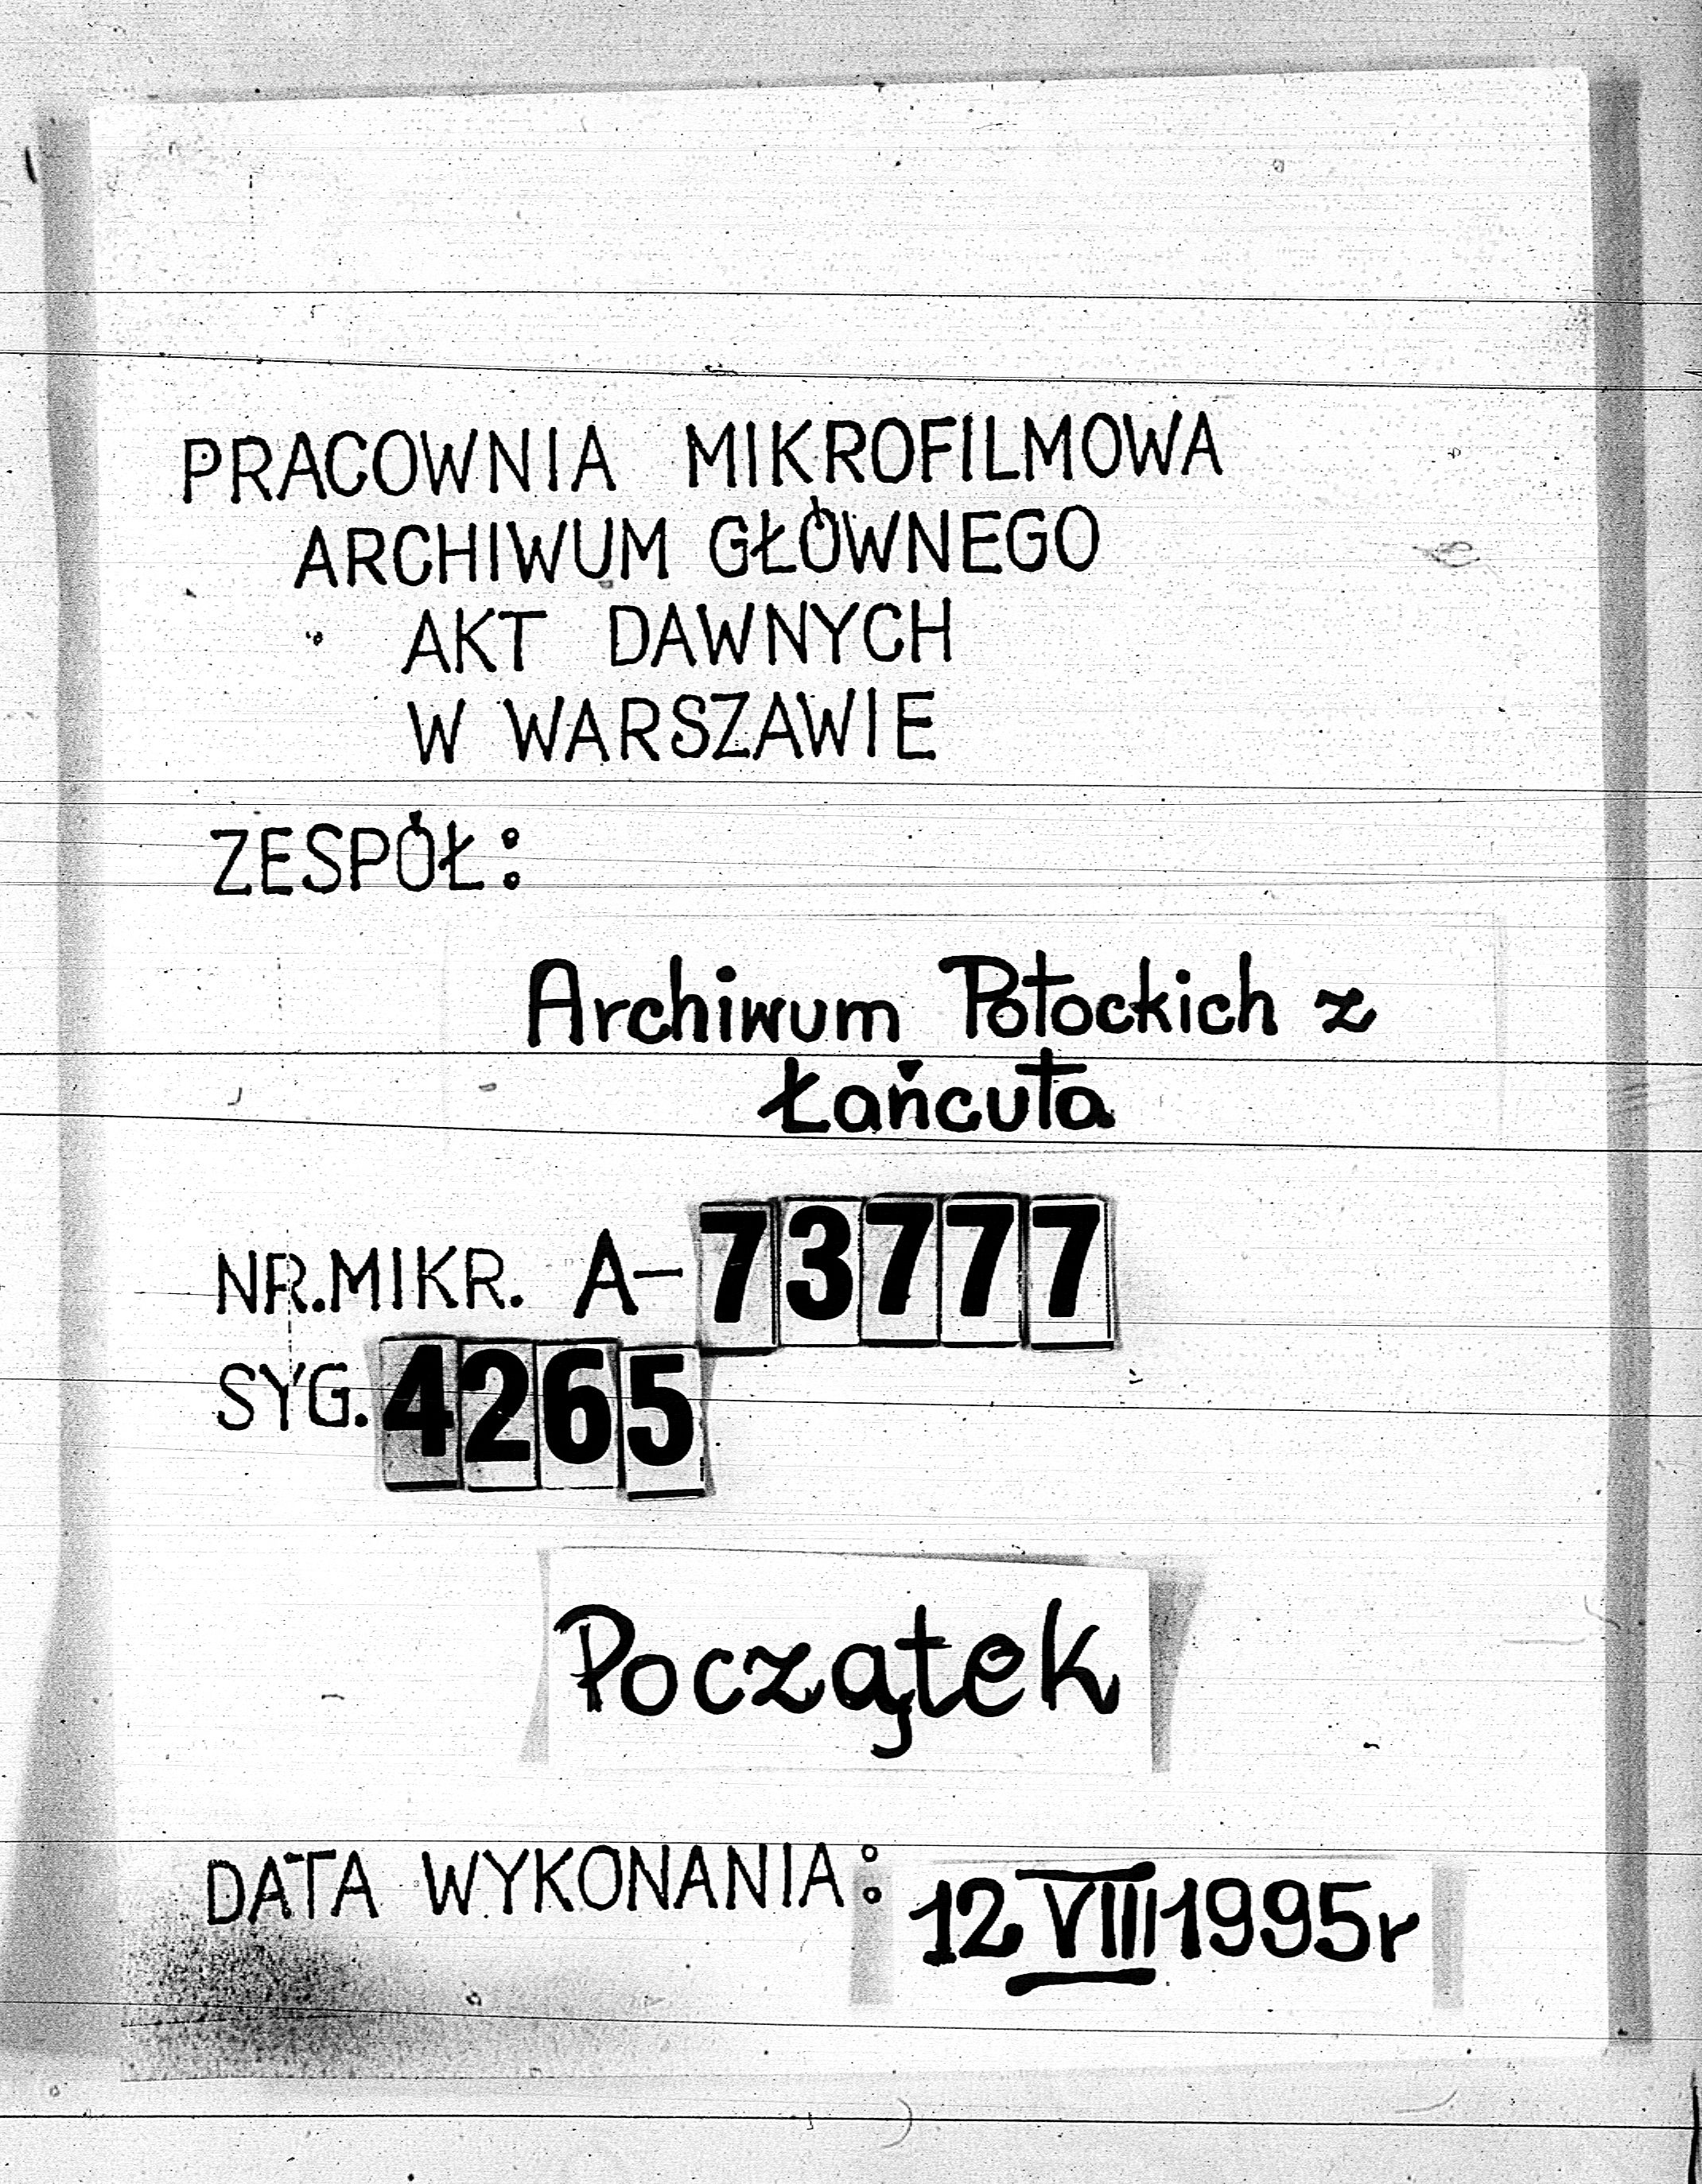 PRACOWNIA MIKROFILMOWA
ARCHIWUM GŁÓWNEGO
AKT DAWNYCH
W WARSZAWIE
ZESPÓŁ:
Archiwum Potockich z
Łańcuta
NR.MIKR. A-73777
SYG. 4265
Początek
DATA WYKONANIA: 12 VIII 1995r